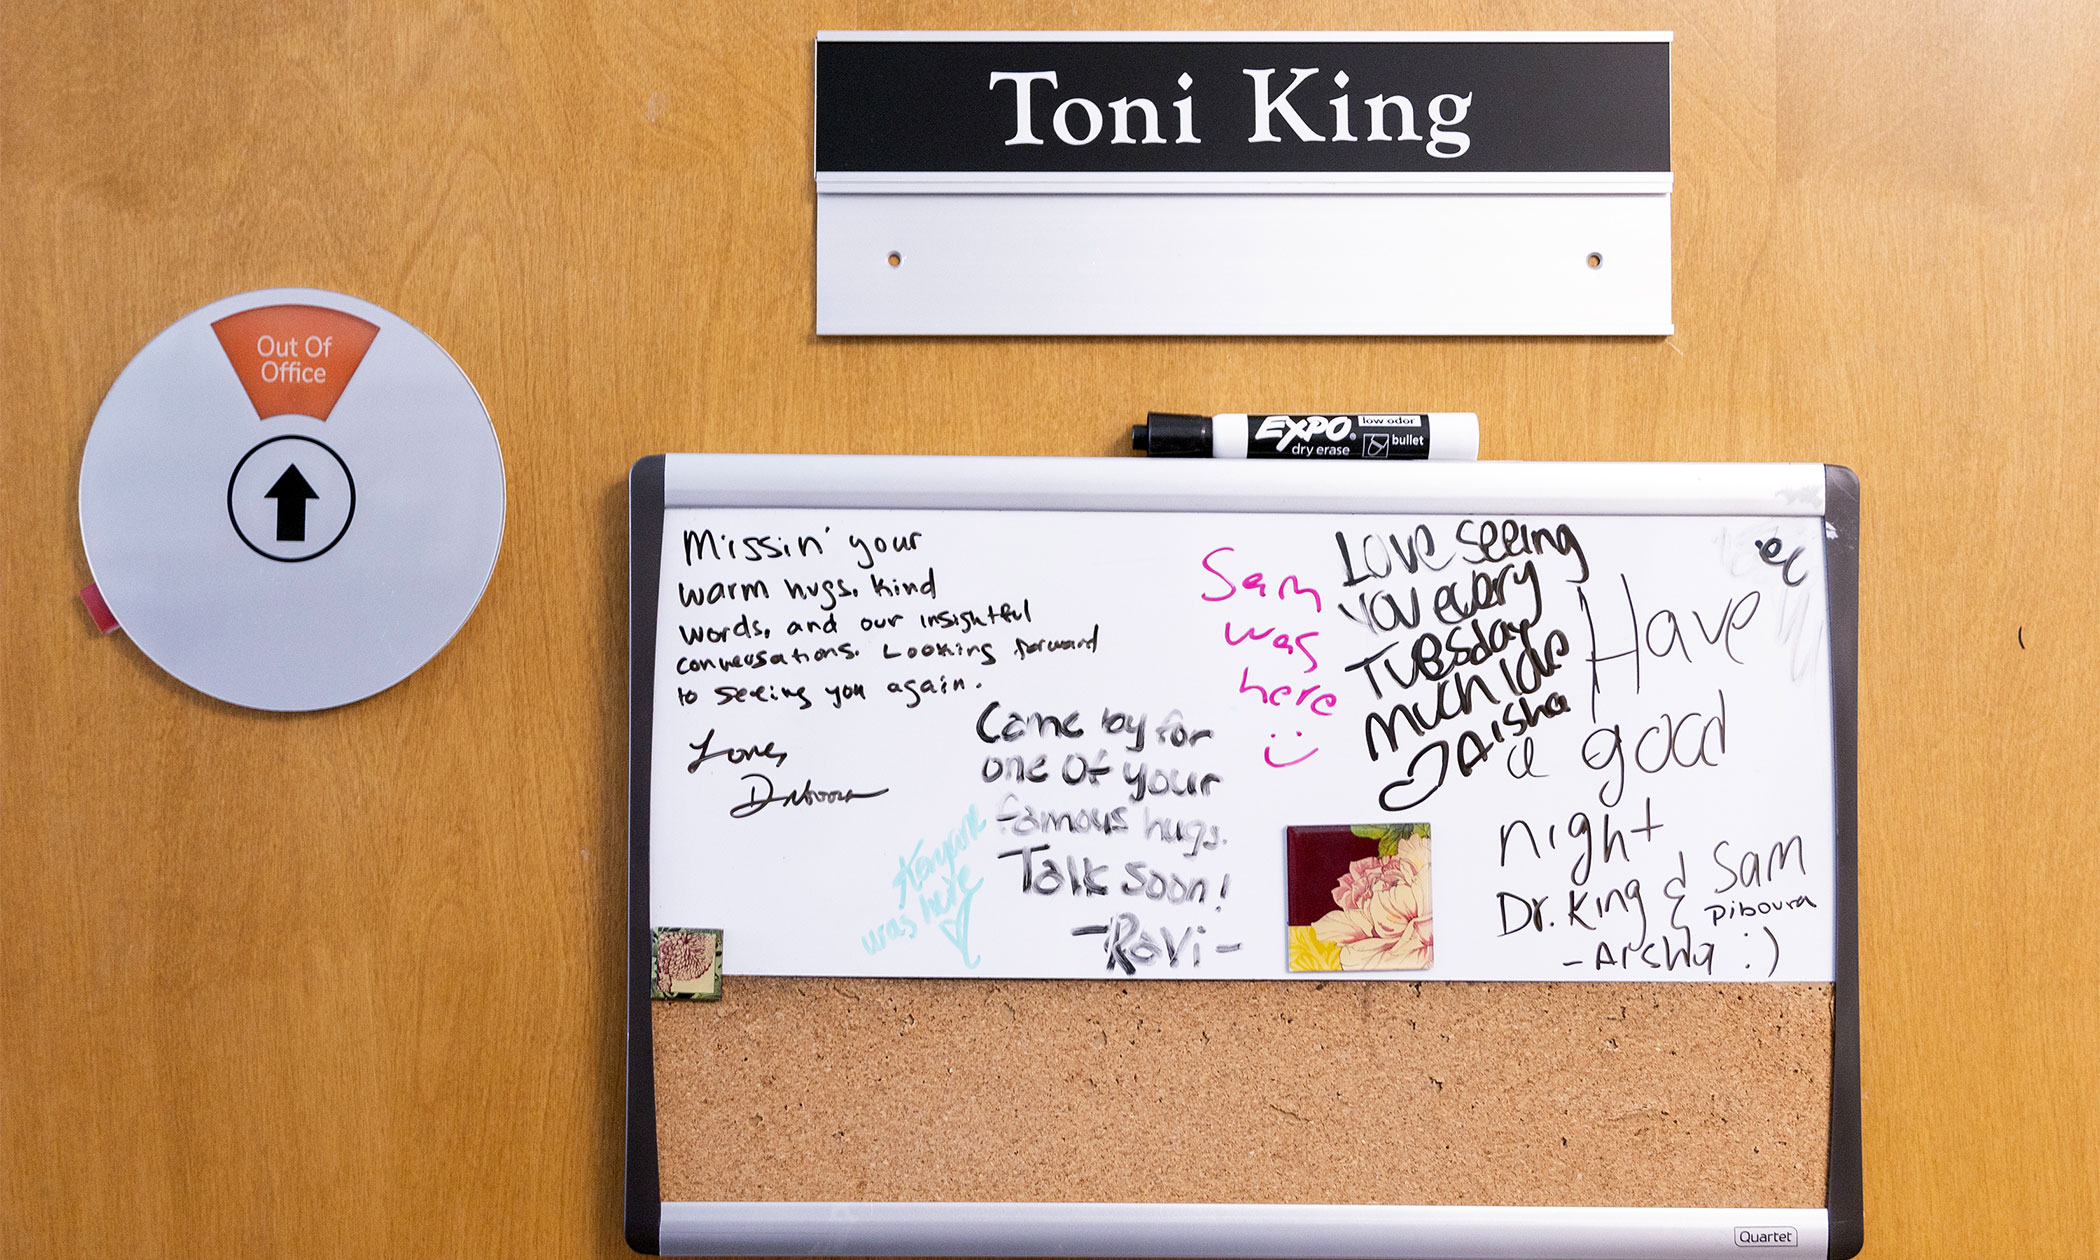 Toni King
Out Of
Office
EXPO®
low odor
dry erase
bullet
Missin' your
warm hugs, kind
words, and our insightful
conversations. Looking forward
to seeing you again.
Love,
Came by for
one of your
famous hugs.
Talk soon!
-Ravi-
was here
Sam
was
here
Love seeing
you every
Tuesday
much love
Aisha
Have
a good
night
Dr. King & Sam
Diboura
- Aisha :)
Quartet